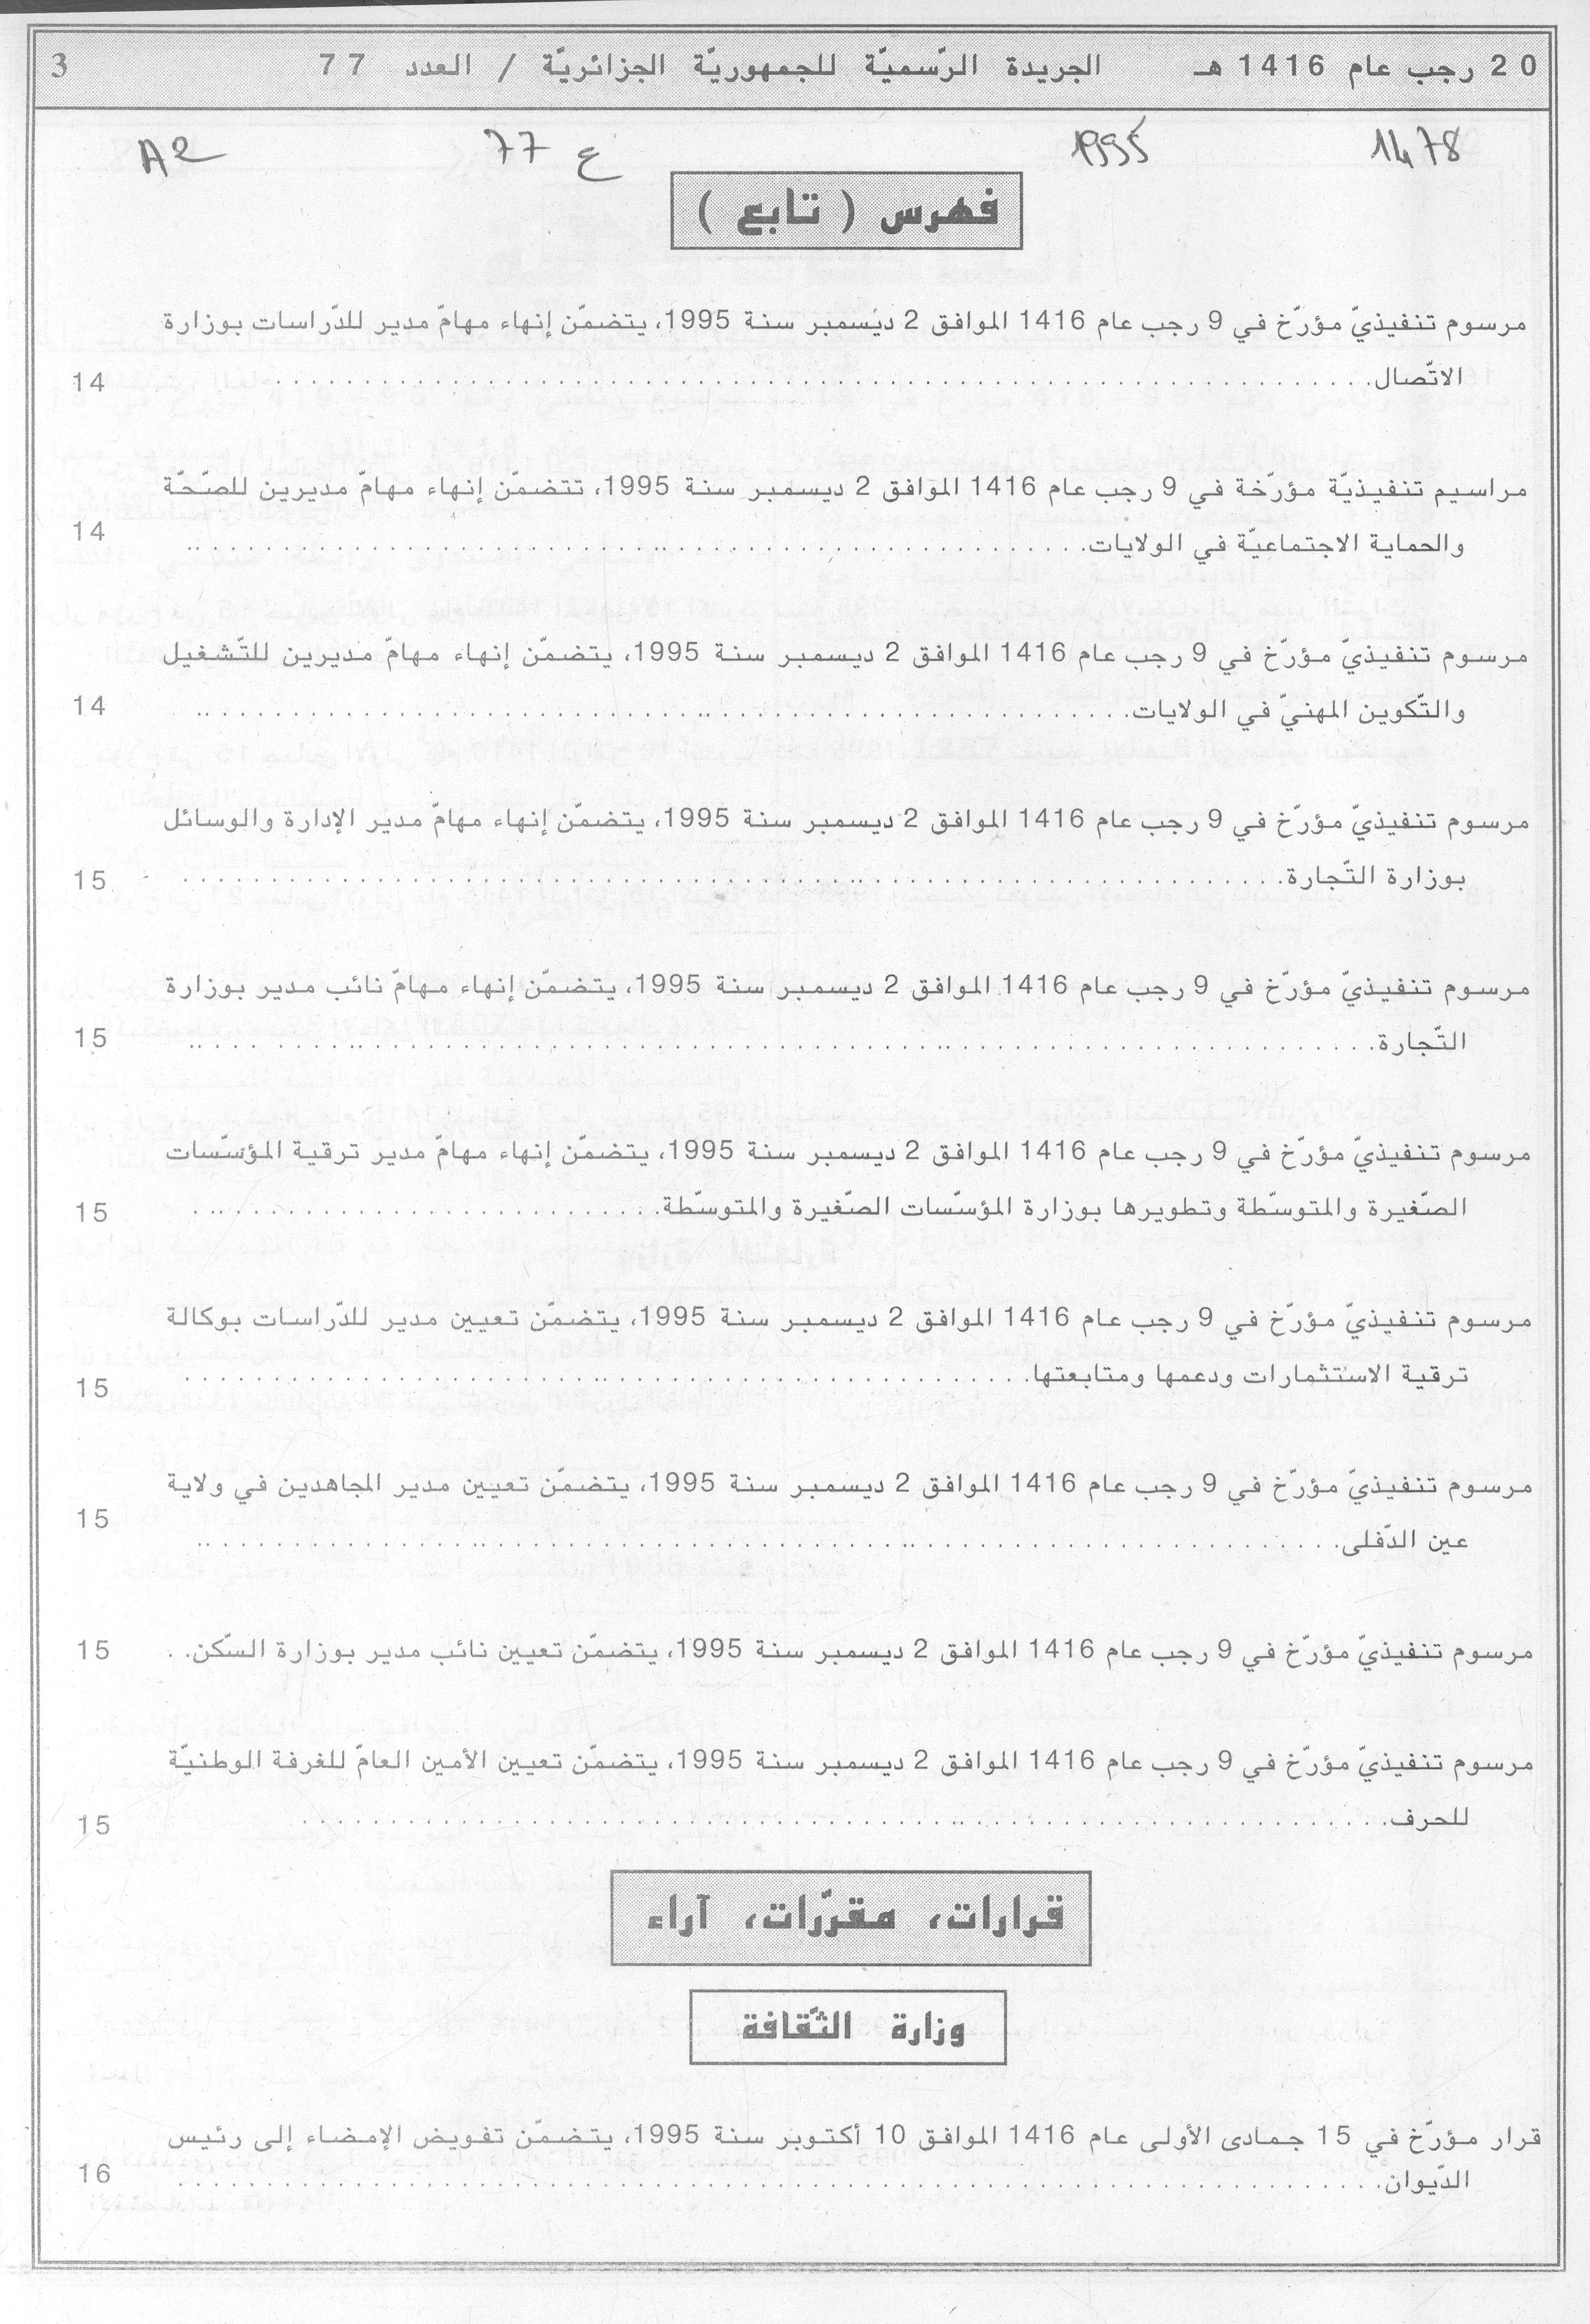 20 رجب عام 1416 هـ الجريدة الرّسميّة للجمهوريّة الجزائريّة / العدد 77 3
1478 1995 ع 77 A2
فهرس ( تابع )
مرسوم تنفيذيّ مؤرّخ في 9 رجب عام 1416 الموافق 2 ديسمبر سنة 1995، يتضمّن إنهاء مهامّ مدير للدّراسات بوزارة
الاتّصال. 14
مراسيم تنفيذيّة مؤرّخة في 9 رجب عام 1416 الموافق 2 ديسمبر سنة 1995، تتضمّن إنهاء مهامّ مديرين للصّحّة
والحماية الاجتماعيّة في الولايات. 14
مرسوم تنفيذيّ مؤرّخ في 9 رجب عام 1416 الموافق 2 ديسمبر سنة 1995، يتضمّن إنهاء مهامّ مديرين للتّشغيل
والتّكوين المهنيّ في الولايات. 14
مرسوم تنفيذيّ مؤرّخ في 9 رجب عام 1416 الموافق 2 ديسمبر سنة 1995، يتضمّن إنهاء مهامّ مدير الإدارة والوسائل
بوزارة التّجارة. 15
مرسوم تنفيذيّ مؤرّخ في 9 رجب عام 1416 الموافق 2 ديسمبر سنة 1995، يتضمّن إنهاء مهامّ نائب مدير بوزارة
التّجارة. 15
مرسوم تنفيذيّ مؤرّخ في 9 رجب عام 1416 الموافق 2 ديسمبر سنة 1995، يتضمّن إنهاء مهامّ مدير ترقية المؤسّسات
الصّغيرة والمتوسّطة وتطويرها بوزارة المؤسّسات الصّغيرة والمتوسّطة. 15
مرسوم تنفيذيّ مؤرّخ في 9 رجب عام 1416 الموافق 2 ديسمبر سنة 1995، يتضمّن تعيين مدير للدّراسات بوكالة
ترقية الاستثمارات ودعمها ومتابعتها. 15
مرسوم تنفيذيّ مؤرّخ في 9 رجب عام 1416 الموافق 2 ديسمبر سنة 1995، يتضمّن تعيين مدير المجاهدين في ولاية
عين الدّفلى. 15
مرسوم تنفيذيّ مؤرّخ في 9 رجب عام 1416 الموافق 2 ديسمبر سنة 1995، يتضمّن تعيين نائب مدير بوزارة السّكن. 15
مرسوم تنفيذيّ مؤرّخ في 9 رجب عام 1416 الموافق 2 ديسمبر سنة 1995، يتضمّن تعيين الأمين العامّ للغرفة الوطنيّة
للحرف. 15
قرارات، مقرّرات، آراء
وزارة الثّقافة
قرار مؤرّخ في 15 جمادى الأولى عام 1416 الموافق 10 أكتوبر سنة 1995، يتضمّن تفويض الإمضاء إلى رئيس
الدّيوان. 16